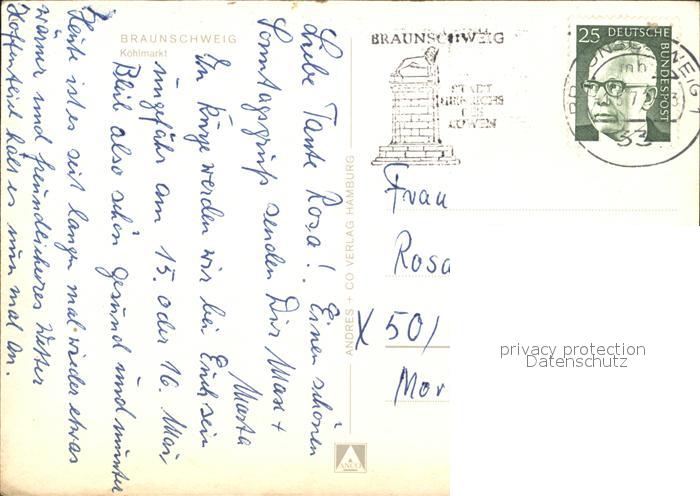 BRAUNSCHWEIG
Köhlmarkt
Liebe Tante Rosa! Einen schönen
Sonntagsgruß senden Dir Max +
Marta
In Kürze werden wir bei Euch sein
ungefähr am 15. oder 16. Mai
Bleib also schön gesund und munter
Heute ist es seit langem mal wieder etwas
wärmer und freundlicheres Wetter
Hoffentlich hält es nun mal an.
ANDRES + CO VERLAG HAMBURG
ANCO
BRAUNSCHWEIG
STADT
HEINRICHS
DES
LÖWEN
25 DEUTSCHE
BUNDESPOST
BRAUNSCHWEIG
33
Frau
Rosa
X 501
Mor
privacy protection
Datenschutz